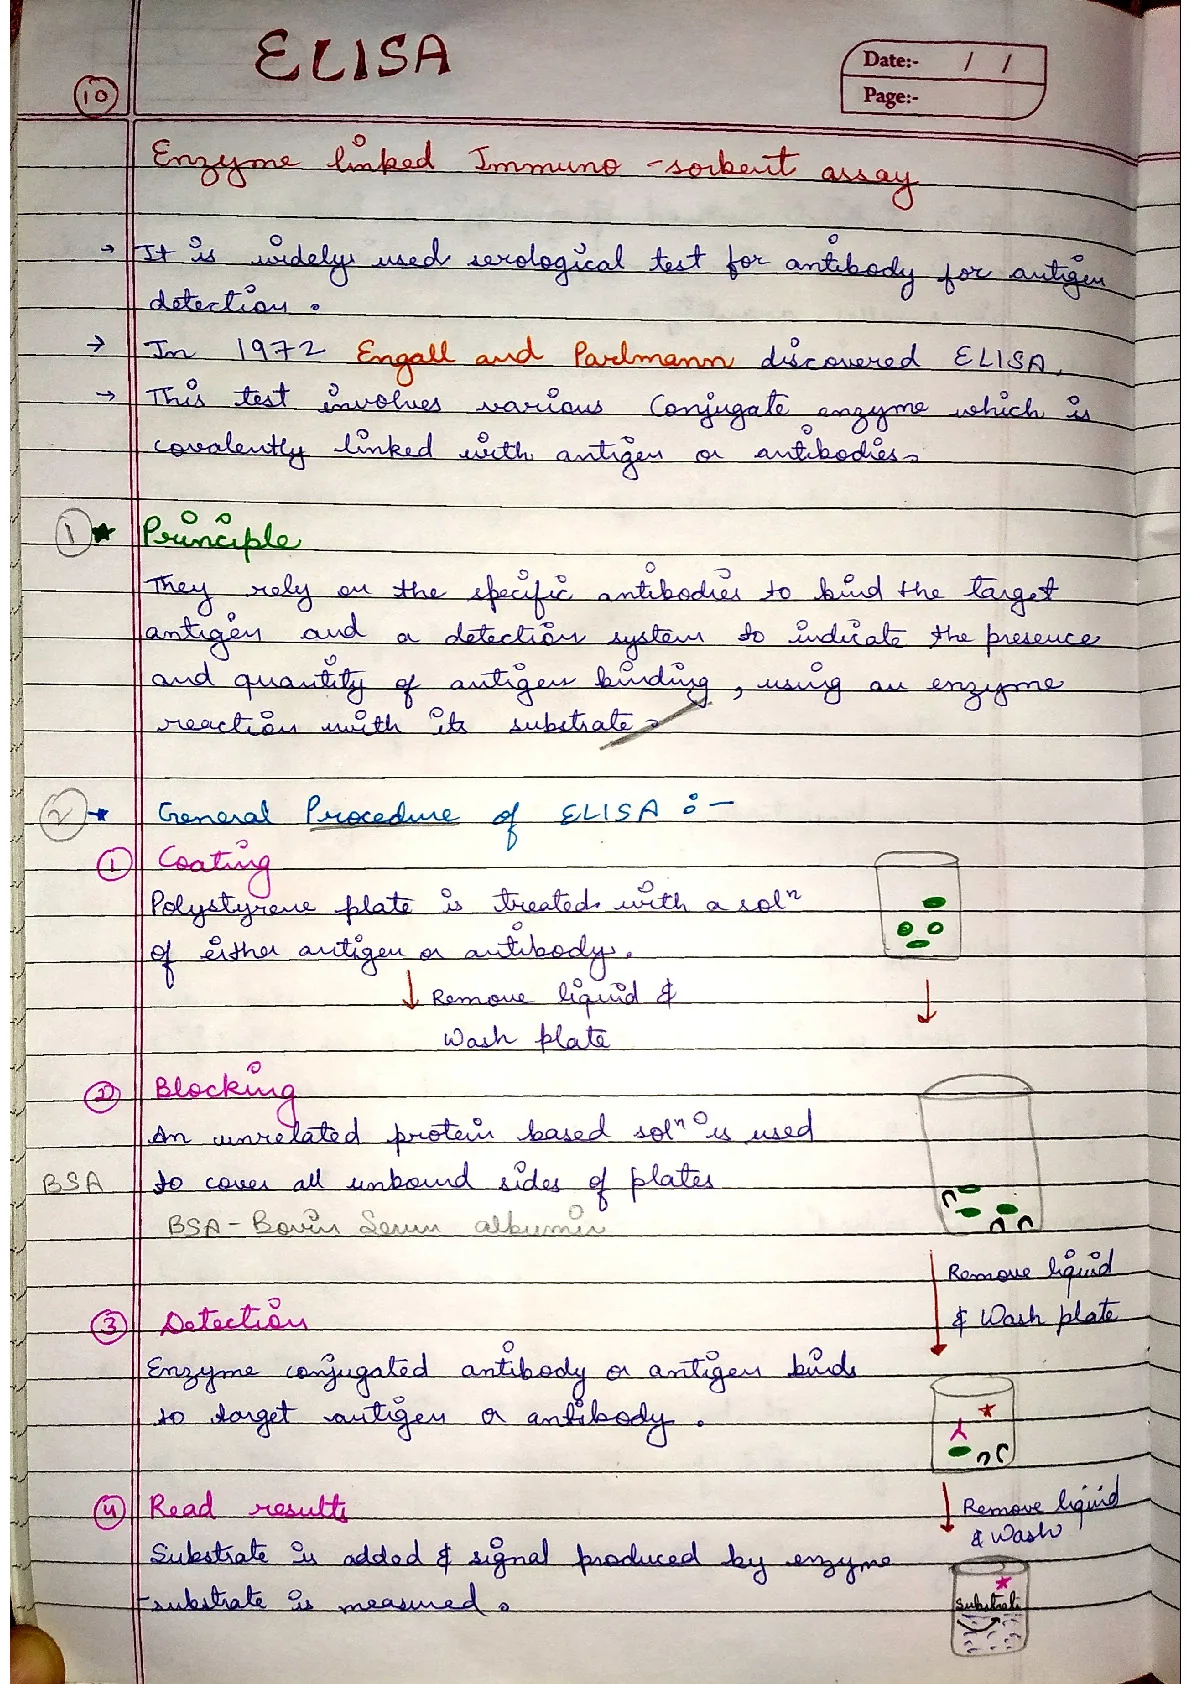 ELISA
Date:- / /
Page:-
10
Enzyme linked Immuno-sorbent assay
→ It is widely used serological test for antibody for antigen
detection.
→ In 1972 Engall and Parlmann discovered ELISA.
→ This test involves various conjugate enzyme which is
covalently linked with antigen or antibodies.
1 ★ Principle
They rely on the specific antibodies to bind the target
antigen and a detection system to indicate the presence
and quantity of antigen binding, using an enzyme
reaction with its substrate.
2 ★ General Procedure of ELISA :-
1 Coating
Polystyrene plate is treated with a solⁿ
of either antigen or antibody.
↓ Remove liquid &
Wash plate
2 Blocking
An unrelated protein based solⁿ is used
BSA to cover all unbound sides of plates
BSA - Bovin Serum albumin
Remove liquid
& Wash plate
3 Detection
Enzyme conjugated antibody or antigen binds
to target antigen or antibody.
4 Read results
Remove liquid
& Wash
Substrate is added & signal produced by enzyme
-substrate is measured.
Substrate